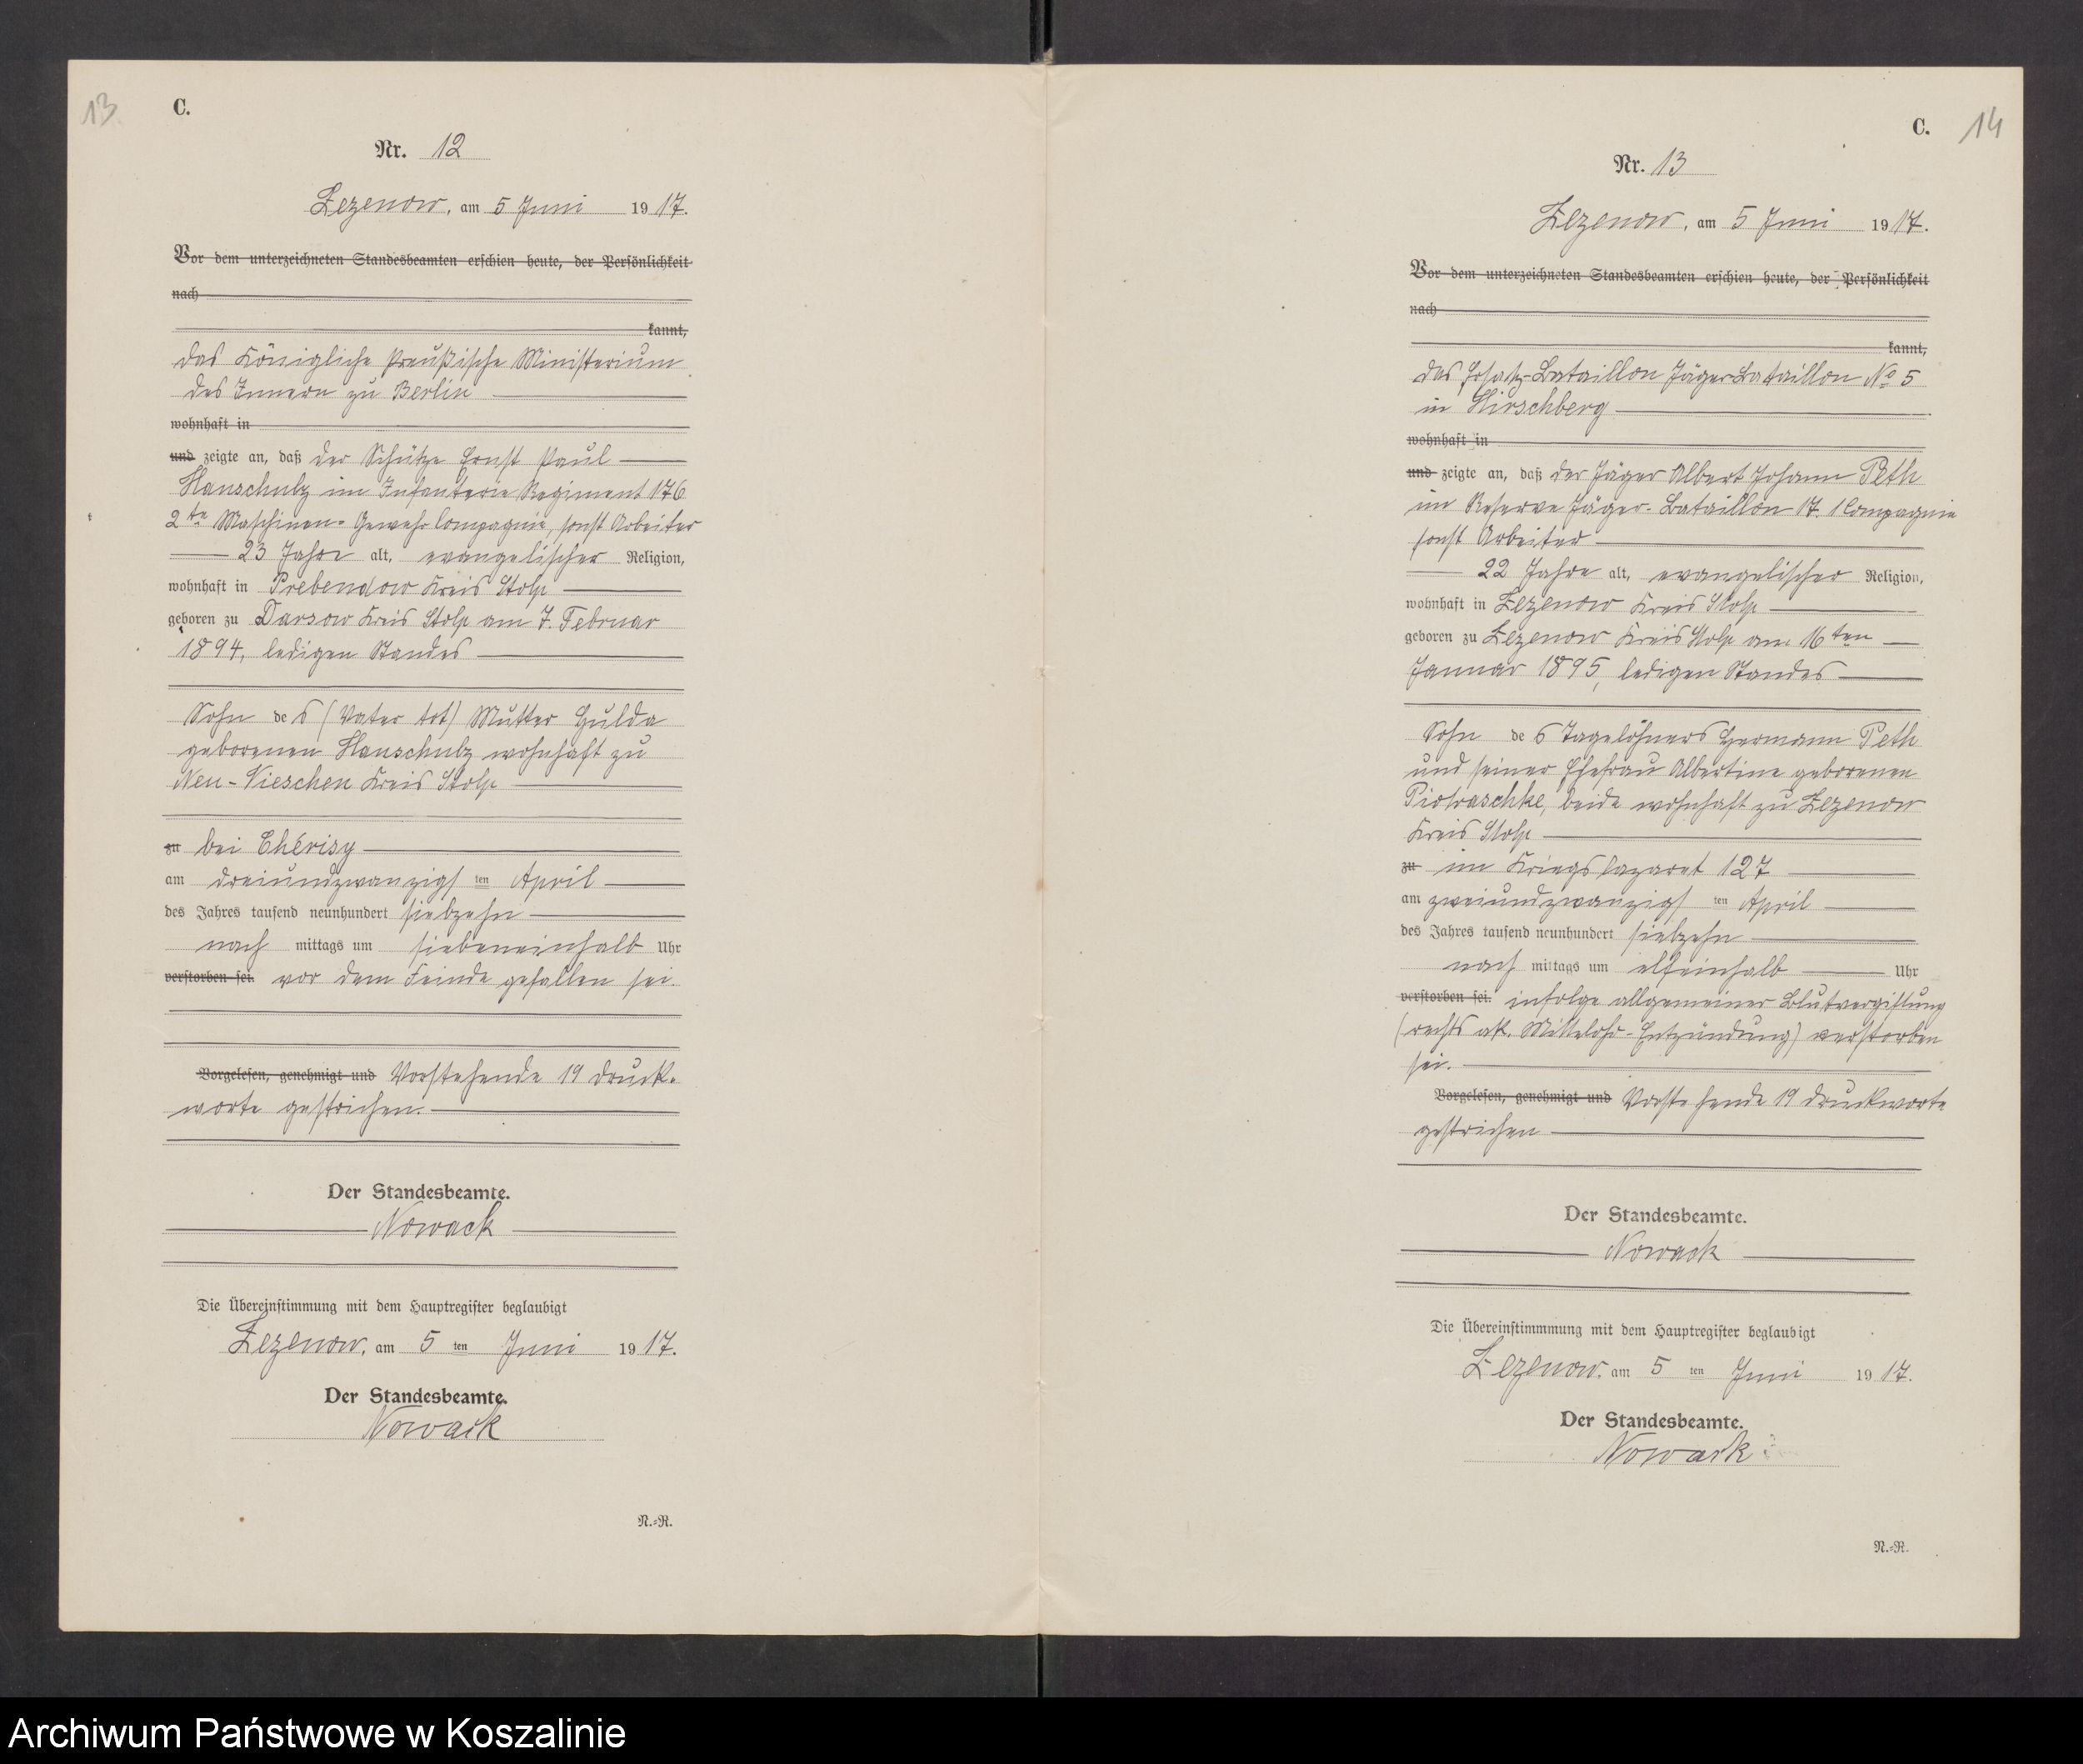 13.
C.
Nr. 12
Zezenow, am 5 Juni 1917.
Vor dem unterzeichneten Standesbeamten erschien heute, der Persönlichkeit
nach
kannt,
das Königliche Preußische Ministerium
des Innern zu Berlin
wohnhaft in
und zeigte an, daß der Schütze Ernst Paul
Hanschulz im Infanterie Regiment 176
2te Maschinen-Gewehr Compagnie, sonst Arbeiter
23 Jahre alt, evangelischer Religion,
wohnhaft in Prebendow Kreis Stolp
geboren zu Darsow Kreis Stolp am 7. Februar
1894, ledigen Standes
Sohn des (Vater tot) Mutter Hulda
geborenen Hanschulz wohnhaft zu
Neu-Vieschen Kreis Stolp
zu bei Chérisy
am dreiundzwanzigsten April
des Jahres tausend neunhundert siebzehn
nachmittags um siebeneinhalb Uhr
verstorben sei. vor dem Feinde gefallen sei.
Vorgelesen, genehmigt und Vorstehende 19 Druck-
worte gestrichen.
Der Standesbeamte.
Nowack
Die Übereinstimmung mit dem Hauptregister beglaubigt
Zezenow, am 5ten Juni 1917.
Der Standesbeamte.
Nowack
N.-R.
C. 14
Nr. 13
Zezenow, am 5 Juni 1917.
Vor dem unterzeichneten Standesbeamten erschien heute, der Persönlichkeit
nach
kannt,
das Ersatz-Bataillon Jäger Bataillon No 5
in Hirschberg
wohnhaft in
und zeigte an, daß der Jäger Albert Johann Peth
im Reserve Jäger-Bataillon 17. 1 Compagnie
sonst Arbeiter
22 Jahre alt, evangelischer Religion,
wohnhaft in Zezenow Kreis Stolp
geboren zu Zezenow Kreis Stolp am 16ten
Januar 1895, ledigen Standes
Sohn des Tagelöhners Hermann Peth
und seiner Ehefrau Albertine geborenen
Piotraschke, beide wohnhaft zu Zezenow
Kreis Stolp
zu im Kriegslazaret 127
am zweiundzwanzigsten April
des Jahres tausend neunhundert siebzehn
nachmittags um elfeinhalb Uhr
verstorben sei. infolge allgemeiner Blutvergiftung
(rechts ak. Mittelohr-Entzündung) verstorben
sei.
Vorgelesen, genehmigt und Vorstehende 19 Druckworte
gestrichen
Der Standesbeamte.
Nowack
Die Übereinstimmung mit dem Hauptregister beglaubigt
Zezenow, am 5ten Juni 1917.
Der Standesbeamte.
Nowack
N.-R.
Archiwum Państwowe w Koszalinie